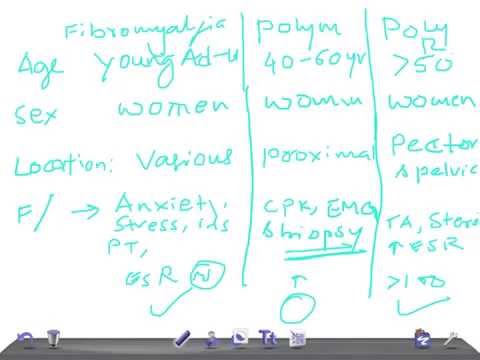 Fibromyalgia polym Poly
R
Age young Ad-u 40-60yr >50
Sex women womm women
Location: Various proximal Pector
spelvic
F/ → Anxiety, CPK, EMG TA, Stero
stress, ins sbiopsy ↑ ESR
PT,
ESR N ↑ >100
Tt